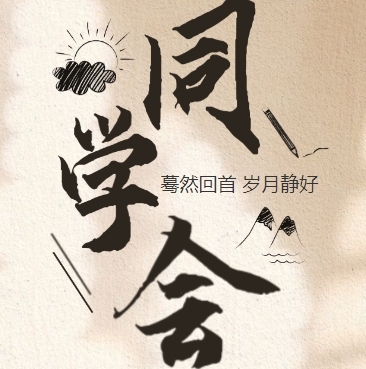 同学会
蓦然回首 岁月静好